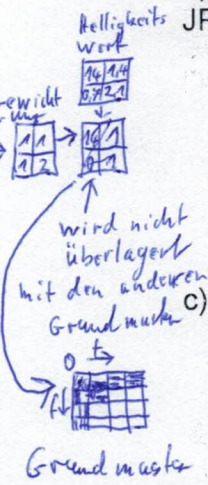 Helligkeits
wert
JP
14 1,4
0,7 2,1
ewicht
1 1
1 2
1
0 1
wird nicht
überlagert
mit den anderen
Grundmuster
c)
0 f
f
Grundmuster